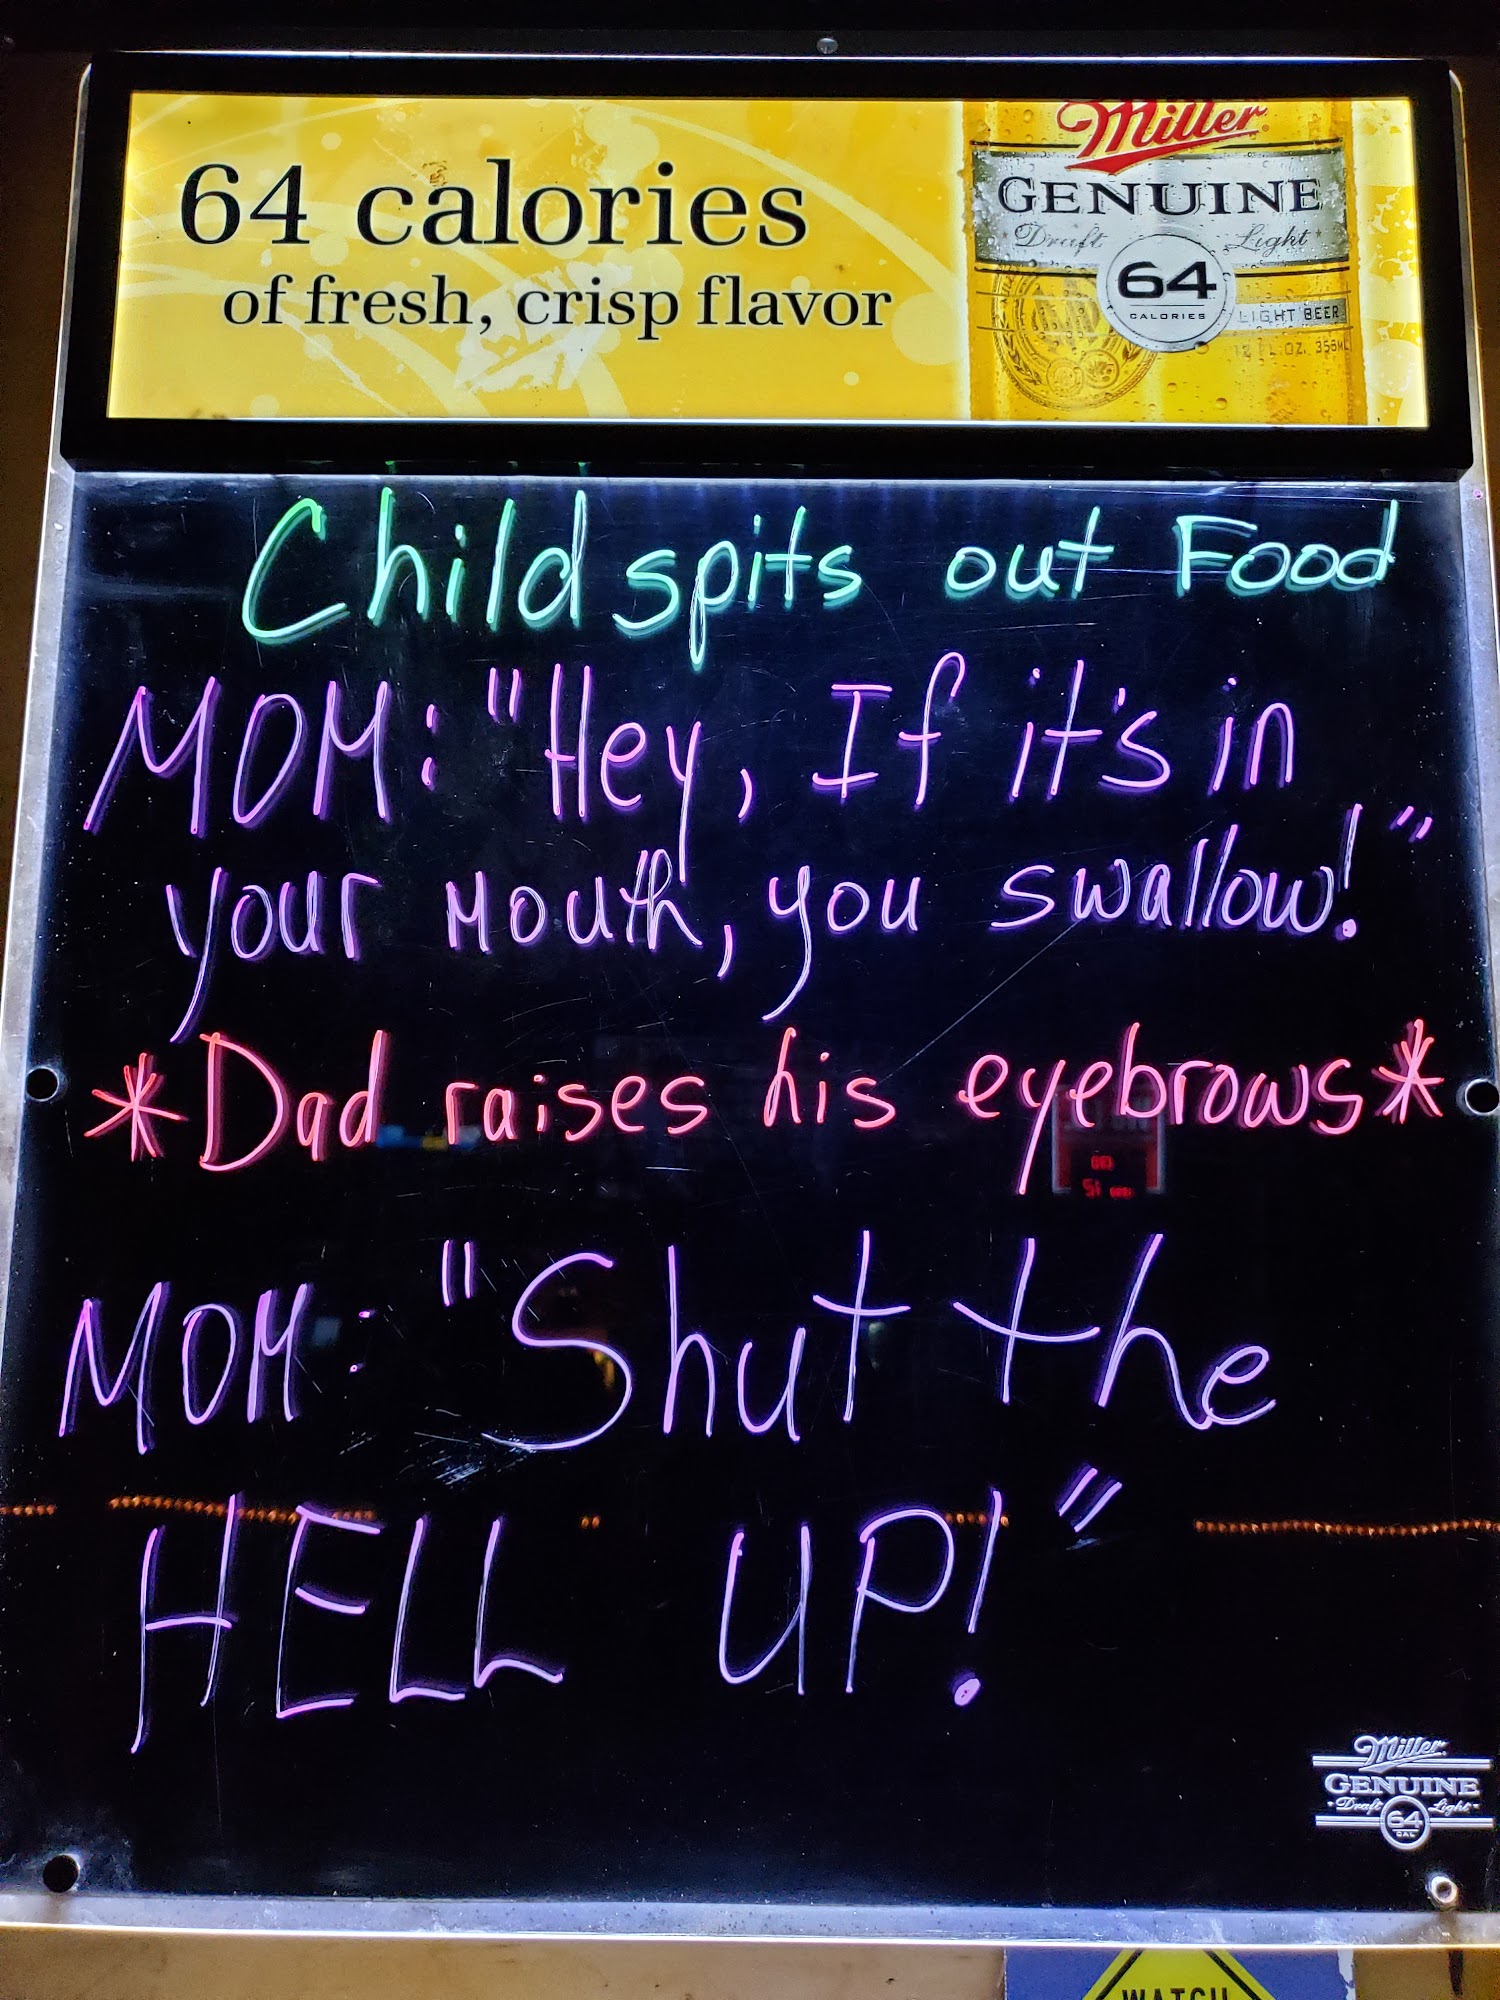 64 calories
of fresh, crisp flavor
Miller
GENUINE
Draft Light
64
CALORIES
LIGHT BEER
12 FL. OZ. 355ML
Child spits out Food
MOM: "Hey, If it's in
your Mouth, you swallow!"
*Dad raises his eyebrows*
MOM: "Shut the
HELL UP!"
Miller
GENUINE
Draft Light
64
CAL
WATCH